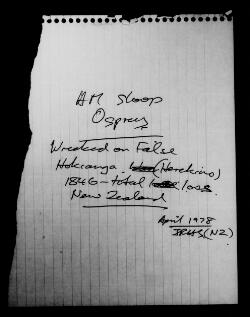 HM Sloop
Osprey
Wrecked on False
Hokianga (Herekino)
1846 - total loss
New Zealand
April 1978
(NZ)